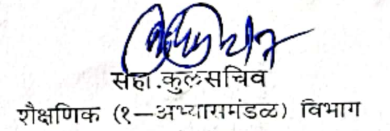 सहा.कुलसचिव
शैक्षणिक (१—अभ्यासमंडळ) विभाग